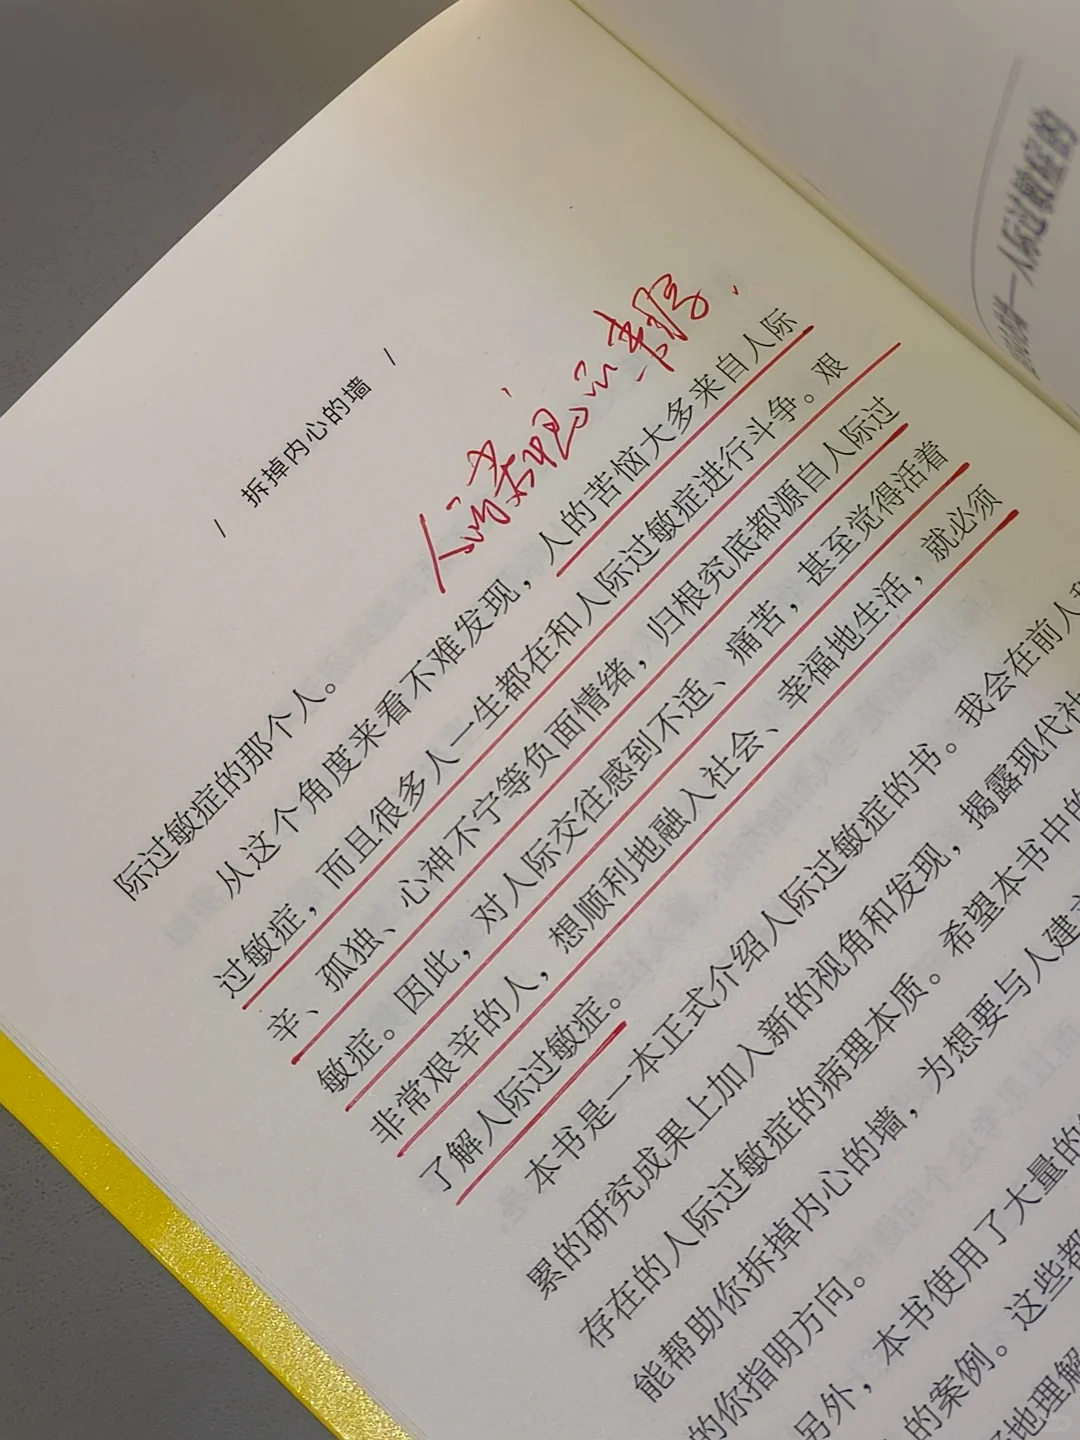 / 拆掉内心的墙 /
际过敏症的那个人。
从这个角度来看不难发现，人的苦恼大多来自人际
过敏症，而且很多人一生都在和人际过敏症进行斗争。艰
辛、孤独、心神不宁等负面情绪，归根究底都源自人际过
敏症。因此，对人际交往感到不适、痛苦，甚至觉得活着
非常艰辛的人，想顺利地融入社会、幸福地生活，就必须
了解人际过敏症。
本书是一本正式介绍人际过敏症的书。我会在前人
累的研究成果上加入新的视角和发现，揭露现代社
存在的人际过敏症的病理本质。希望本书中的
能帮助你拆掉内心的墙，为想要与人建
的你指明方向。
另外，本书使用了大量的
的案例。这些都
地理解
人际过敏症的